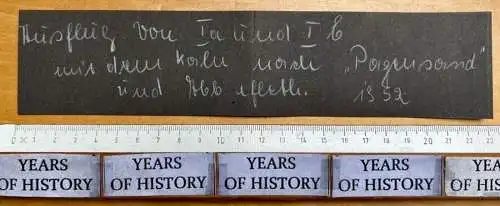 Ausflug von Ia und I b
mit dem Kahn nach „Pagensand"
und 1952
0 1 2 3 4 5 6 7 8 9 10 11 12 13 14 15 16 17 18 19 20 21 22 23
YEARS YEARS YEARS YEARS YEARS
OF HISTORY OF HISTORY OF HISTORY OF HISTORY OF HIS